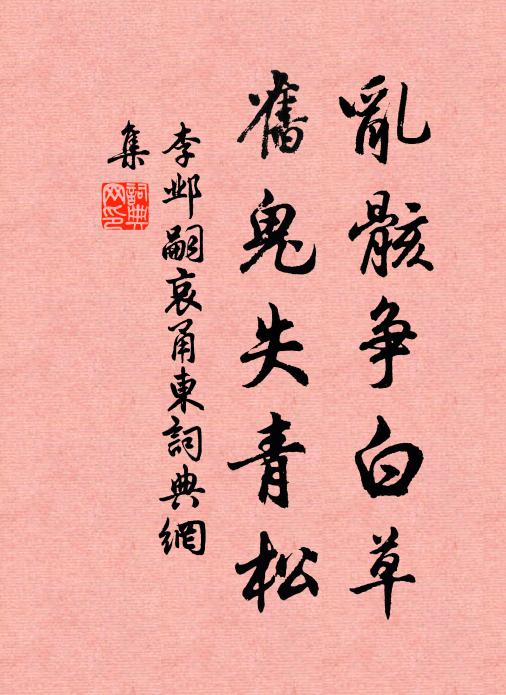 亂骸争白草
舊鬼失青松
李邺嗣哀甬東詞典網
集
詞典网印